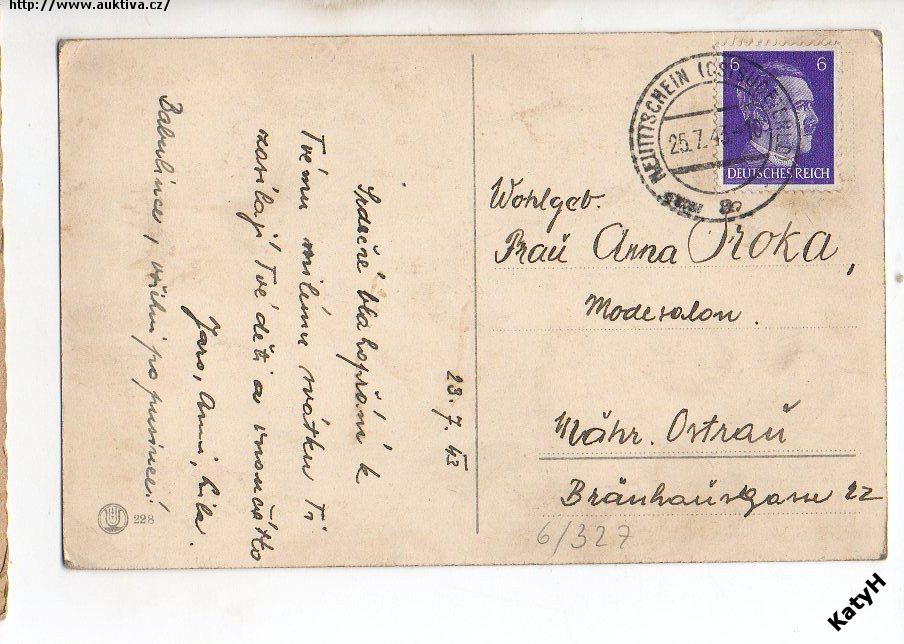 http://www.auktiva.cz/
23. 7. 43
Srdečné blahopřání k
Tvému milému svátku Ti
zasílají Tvé děti a vnoučátko
Jaro, Anni, Lila.
Babulince, všichni po pusince!
228
6 6
DEUTSCHES REICH
NEUTITSCHEIN
25.7.43
Wohlgeb.
Fraŭ Anna Proka,
Modesalon.
Mähr. Ostraŭ
Bräuhausgasse 22
6/327
KatyH